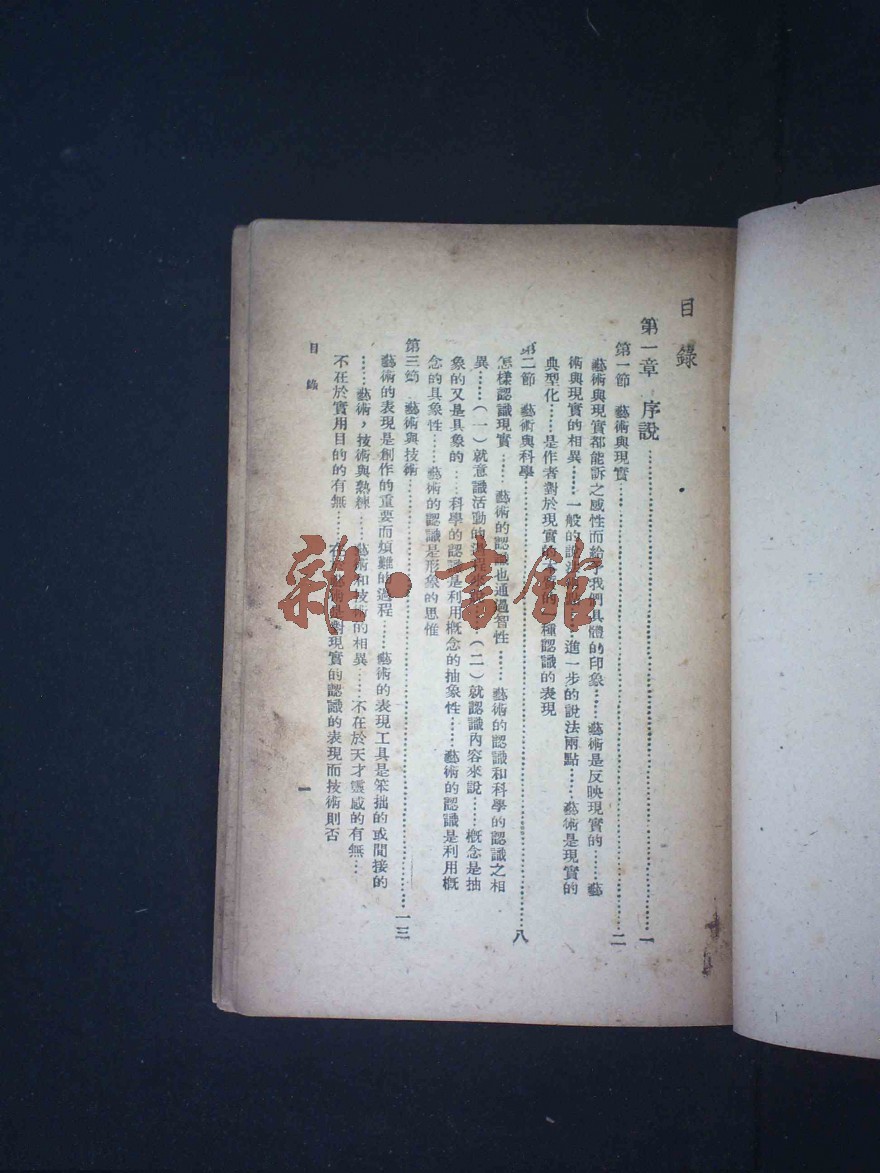 目錄
第一章 序說……一
第一節 藝術與現實……二
藝術與現實都能訴之感性而給予我們具體的印象……藝術是反映現實的……藝
術與現實的相異……一般的說法……進一步的說法兩點……藝術是現實的
典型化……是作者對於現實的 種認識的表現
第二節 藝術與科學……八
怎樣認識現實……藝術的認識也通過智性……藝術的認識和科學的認識之相
異……(一)就意識活動的過程來……(二)就認識內容來說……概念是抽
象的又是具象的……科學的認識是利用概念的抽象性……藝術的認識是利用概
念的具象性……藝術的認識是形象的思惟
第三節 藝術與技術……一三
藝術的表現是創作的重要而煩難的過程……藝術的表現工具是笨拙的或間接的
……藝術,技術與熟練……藝術和技術的相異……不在於天才靈感的有無…
不在於實用目的的有無……在 藝術是對現實的認識的表現而技術則否
目錄
一
雜·書館